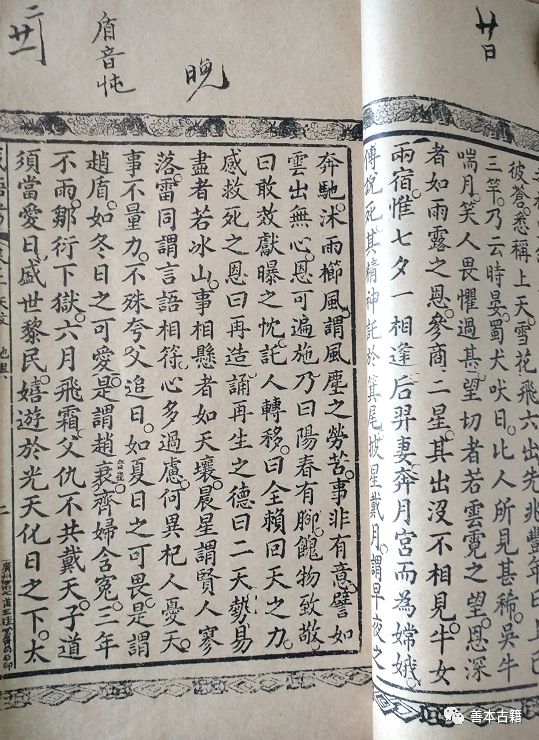 廿日
彼蒼。悉稱上天。雪花飛六出先兆豐年日上已
三竿。乃云時晏。蜀犬吠日。比人所見甚稀。吳牛
喘月。笑人畏懼過甚。望切者若雲霓之望。恩深
者如雨露之恩。參商二星。其出沒不相見。牛女
兩宿惟七夕一相逢。后羿妻奔月宮而為嫦娥
傅說死。其精神託於箕尾。披星戴月。謂早夜之
晚
盾音忳
二廿一
奔馳。沐雨櫛風謂風塵之勞苦。事非有意譬如
雲出無心。恩可遍施乃曰陽春有脚。餽物致敬。
曰敢效獻曝之忱。託人轉移。曰全賴回天之力。
感救死之恩曰再造誦再生之德曰二天。勢易
盡者若冰山。事相懸者如天壤。晨星謂賢人寥
落。雷同謂言語相符。心多過慮。何異杞人憂天。
事不量力。不殊夸父追日。如夏日之可畏。是謂
趙盾。如冬日之可愛。是謂趙衰。齊婦含冤。三年
不雨。鄒衍下獄。六月飛霜。父仇不共戴天。子道
須當愛日。盛世黎民。嬉遊於光天化日之下。太
地輿
二
善本古籍